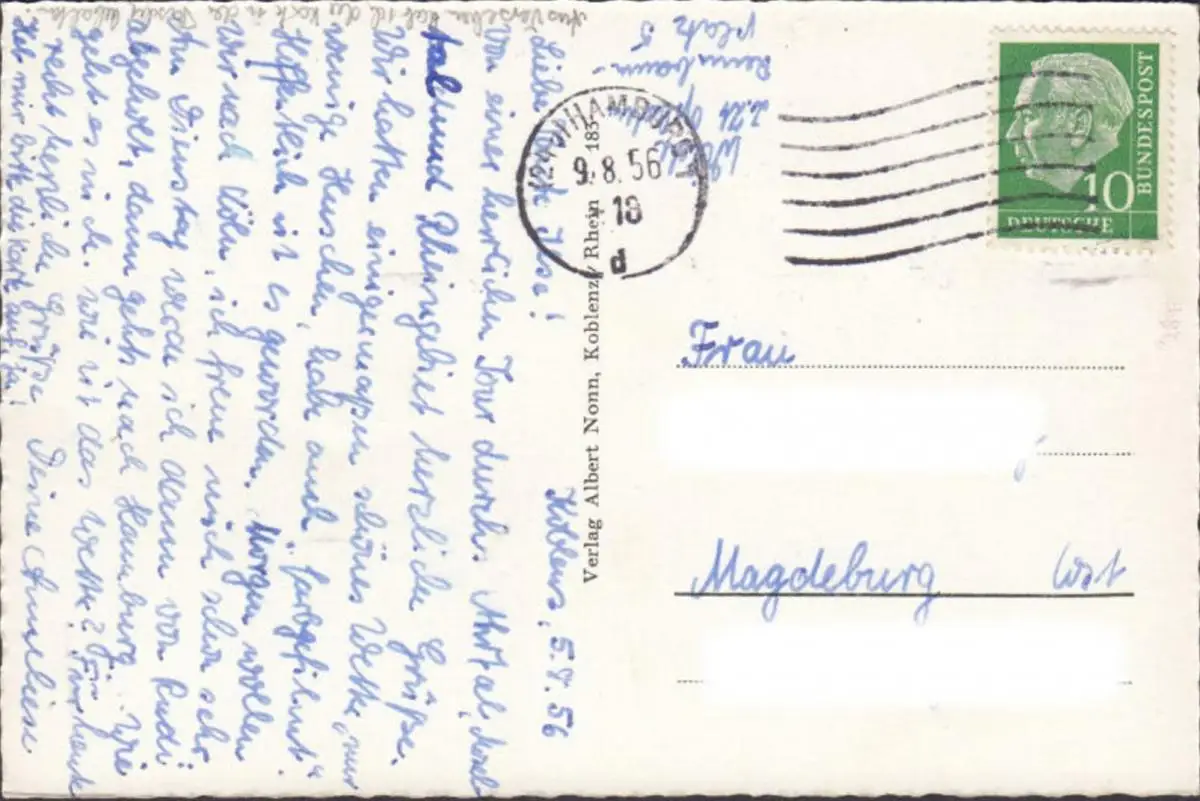 Koblenz, 5.8.56
Liebe Ilse!
Von einer herrlichen Tour durchs Ahrtal, Mosel-
tal und Rheingebiet herzliche Grüße.
Wir hatten einigermassen schönes Wetter, nur
wenige Huschen, hab auch „farbgefilmt“
Hoffentlich ist es geworden. Morgen wollen
wir nach Köln, ich freue mich schon sehr
Am Dienstag werd ich dann von Rudi
abgeholt, dann gehts nach Hamburg. Wie
geht es euch, wie ist das Wetter? Für heute
recht herzliche Grüße Deine Anneliese
Heb mir bitte die Karte auf, ja!
Aus Versehen hab ich die Karte in der
z.Zt.
platz 5
HAMBURG
9.8.56
18
d
DEUTSCHE
BUNDESPOST
10
Verlag Albert Nonn, Koblenz / Rhein 183
Frau
Magdeburg Ost